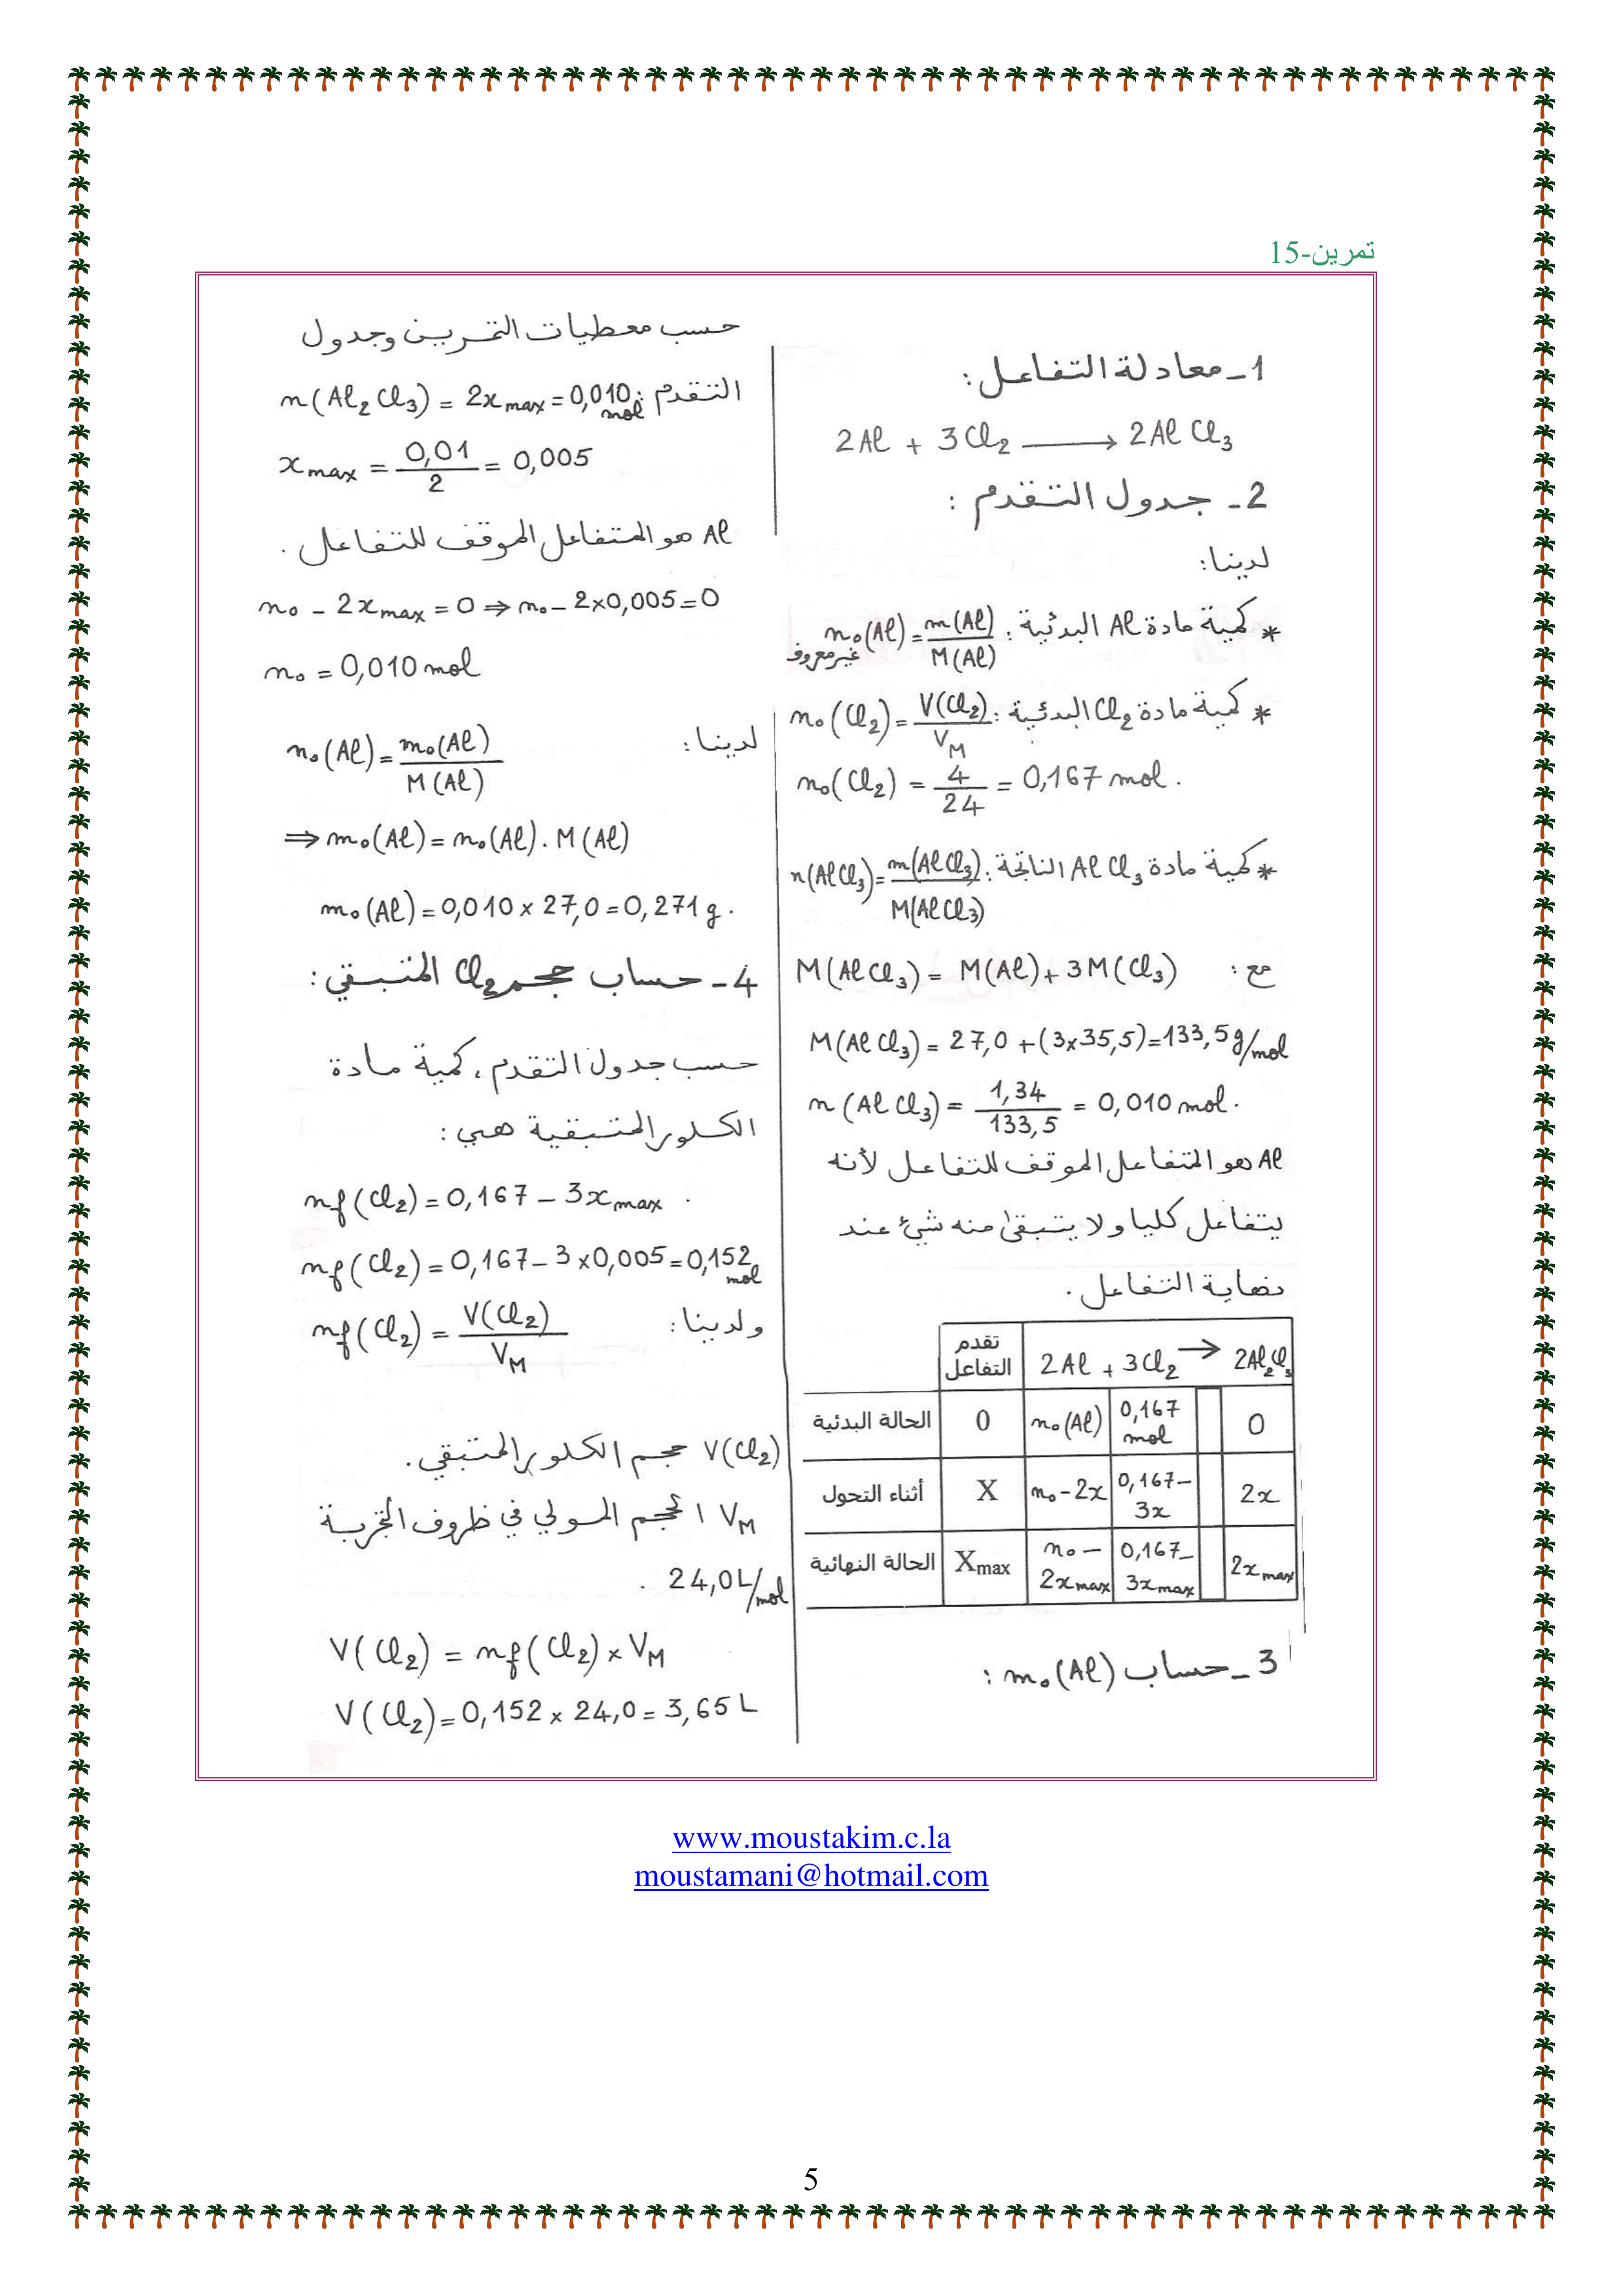 تمرين-15
1- معادلة التفاعل:
2Al + 3Cl₂ ⟶ 2AlCl₃
2- جدول التقدم:
لدينا:
* كمية مادة Al البدئية: n₀(Al) = m(Al)/M(Al)
غير معروف
* كمية مادة Cl₂ البدئية: n₀(Cl₂) = V(Cl₂)/V_M
n₀(Cl₂) = 4/24 = 0,167 mol.
* كمية مادة AlCl₃ الناتجة: n(AlCl₃) = m(AlCl₃)/M(AlCl₃)
مع: M(AlCl₃) = M(Al) + 3M(Cl₃)
M(AlCl₃) = 27,0 + (3×35,5) = 133,5 g/mol
n(AlCl₃) = 1,34/133,5 = 0,010 mol.
Al هو المتفاعل الموقف للتفاعل لأنه
يتفاعل كليا ولا يتبقى منه شيء عند
نهاية التفاعل.
تقدم التفاعل 2Al + 3Cl₂ → 2Al₂Cl₃
الحالة البدئية 0 n₀(Al) 0,167 mol 0
أثناء التحول X n₀-2x 0,167-3x 2x
الحالة النهائية Xmax n₀-2xmax 0,167-3xmax 2xmax
3- حساب m₀(Al):
حسب معطيات التمرين وجدول
التقدم: n(Al₂Cl₃) = 2xmax = 0,010 mol
xmax = 0,01/2 = 0,005
Al هو المتفاعل الموقف للتفاعل.
n₀ - 2xmax = 0 ⇒ n₀ - 2×0,005 = 0
n₀ = 0,010 mol
لدينا: n₀(Al) = m₀(Al)/M(Al)
⇒ m₀(Al) = n₀(Al) . M(Al)
m₀(Al) = 0,010 × 27,0 = 0,271 g.
4- حساب حجم Cl₂ المتبقي:
حسب جدول التقدم، كمية مادة
الكلور المتبقية هي:
nf(Cl₂) = 0,167 - 3xmax.
nf(Cl₂) = 0,167 - 3×0,005 = 0,152 mol
ولدينا: nf(Cl₂) = V(Cl₂)/V_M
V(Cl₂) حجم الكلور المتبقي.
V_M الحجم المولي في ظروف التجربة
24,0 L/mol.
V(Cl₂) = nf(Cl₂) × V_M
V(Cl₂) = 0,152 × 24,0 = 3,65 L
www.moustakim.c.la
moustamani@hotmail.com
5